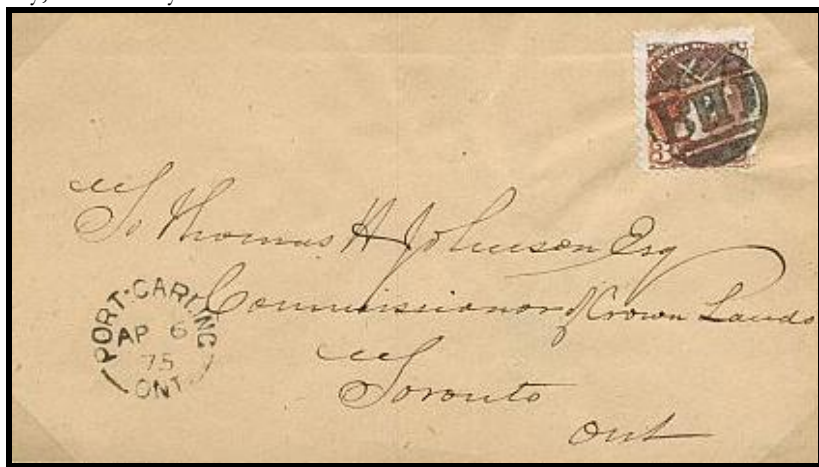 BHT
3
To Thomas H Johnson Esq
Commissioner of Crown Lands
Toronto
Ont
PORT-CARLING
AP 6
75
ONT.